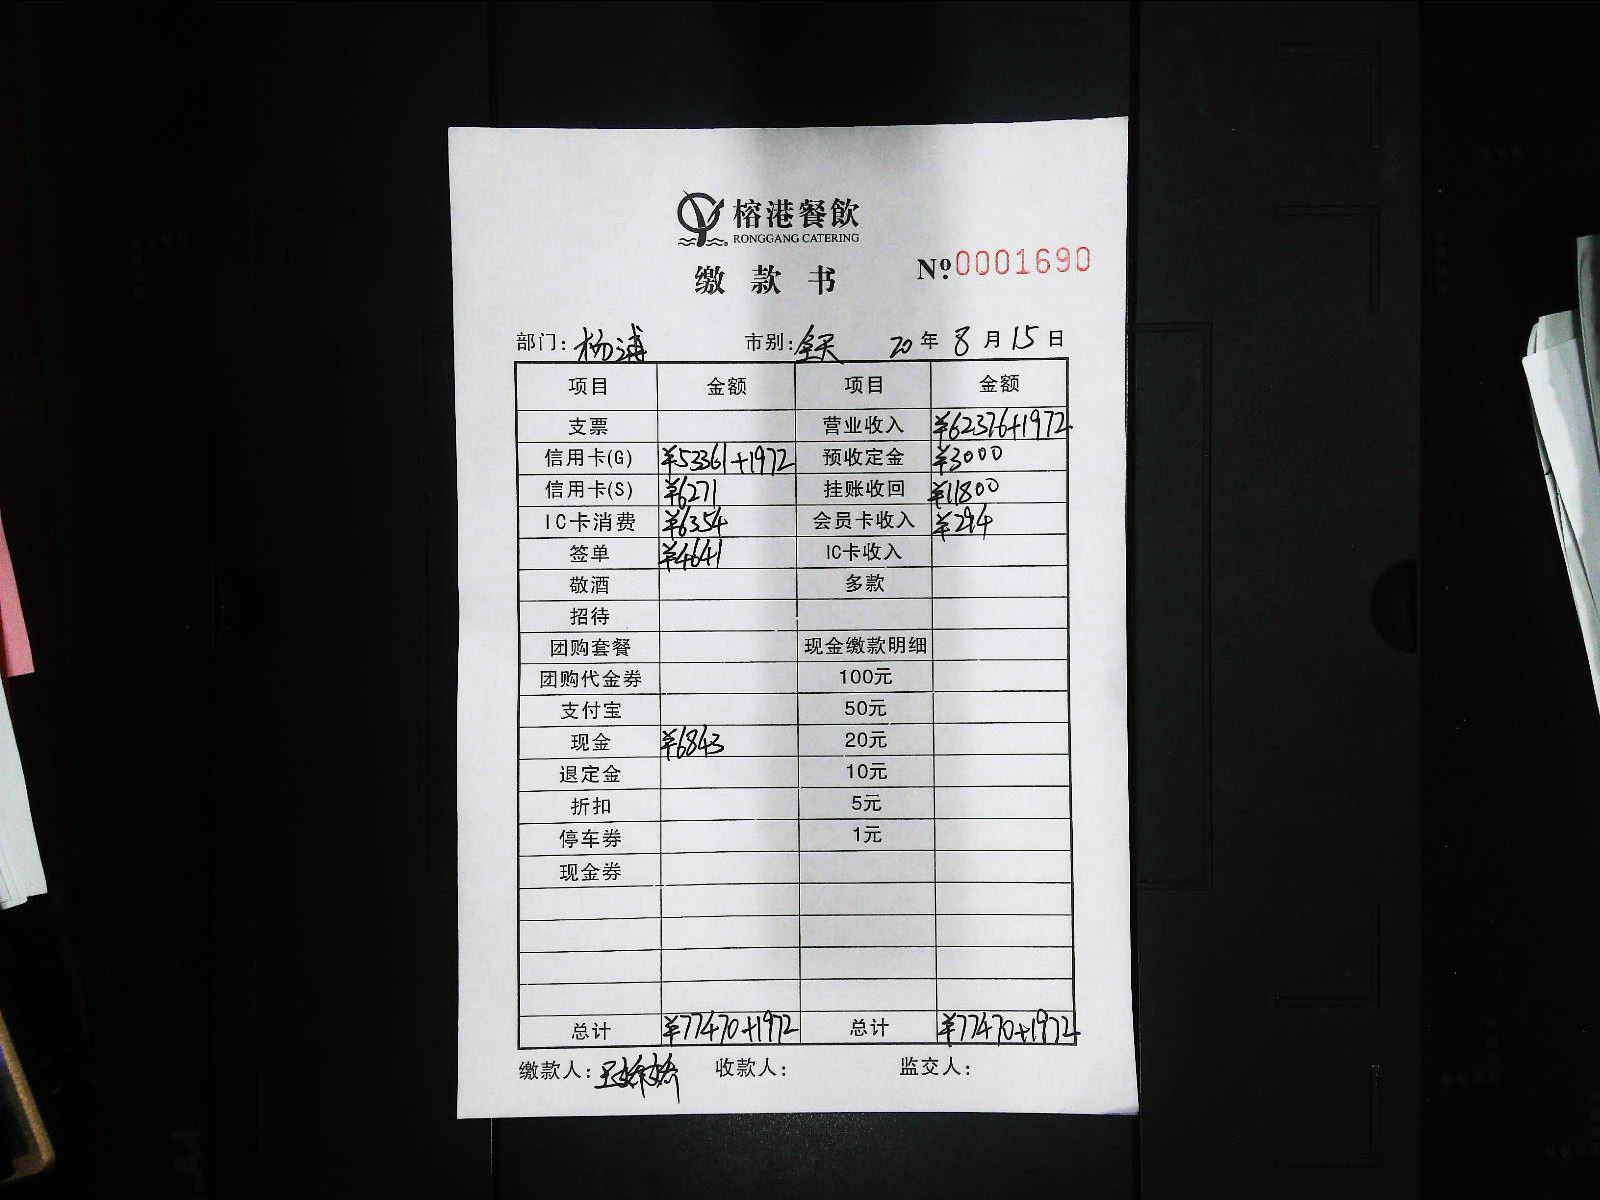 榕港餐飲
RONGGANG CATERING
缴款书 №0001690
部门: 杨浦 市别: 全天 20年8月15日
项目 金额 项目 金额
支票 营业收入 ¥62376+1972
信用卡(G) ¥53361+1972 预收定金 ¥3000
信用卡(S) ¥6271 挂账收回 ¥11800
IC卡消费 ¥6354 会员卡收入 ¥294
签单 ¥4641 IC卡收入
敬酒 多款
招待
团购套餐 现金缴款明细
团购代金券 100元
支付宝 50元
现金 ¥6843 20元
退定金 10元
折扣 5元
停车券 1元
现金券
总计 ¥77470+1972 总计 ¥77470+1972
缴款人: 收款人: 监交人: